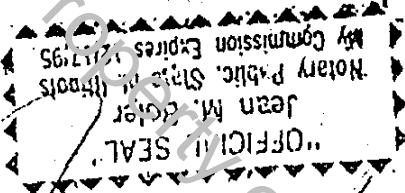 "OFFICIAL SEAL"
Jean M.
Notary Public, State of Illinois
My Commission Expires 12/17/95